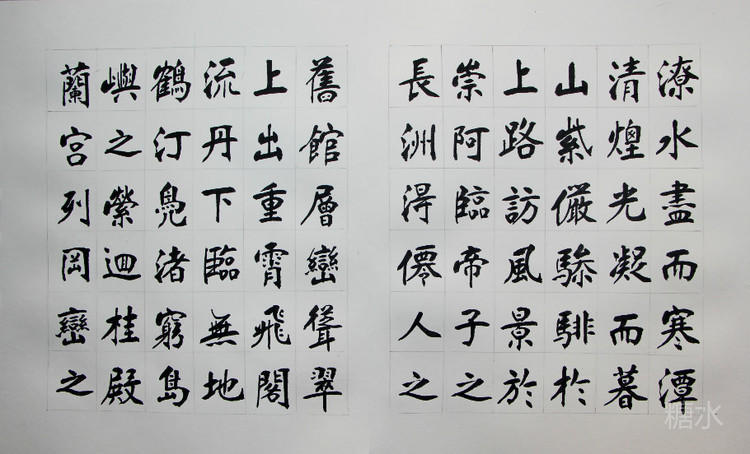 潦水盡而寒潭
清煌光凝而暮
山紫儼驂騑於
上路訪風景於
崇阿臨帝子之
長洲得僊人之
舊館層巒聳翠
上出重霄飛閣
流丹下臨無地
鶴汀鳧渚窮島
嶼之縈迴桂殿
蘭宮列岡巒之
糖水